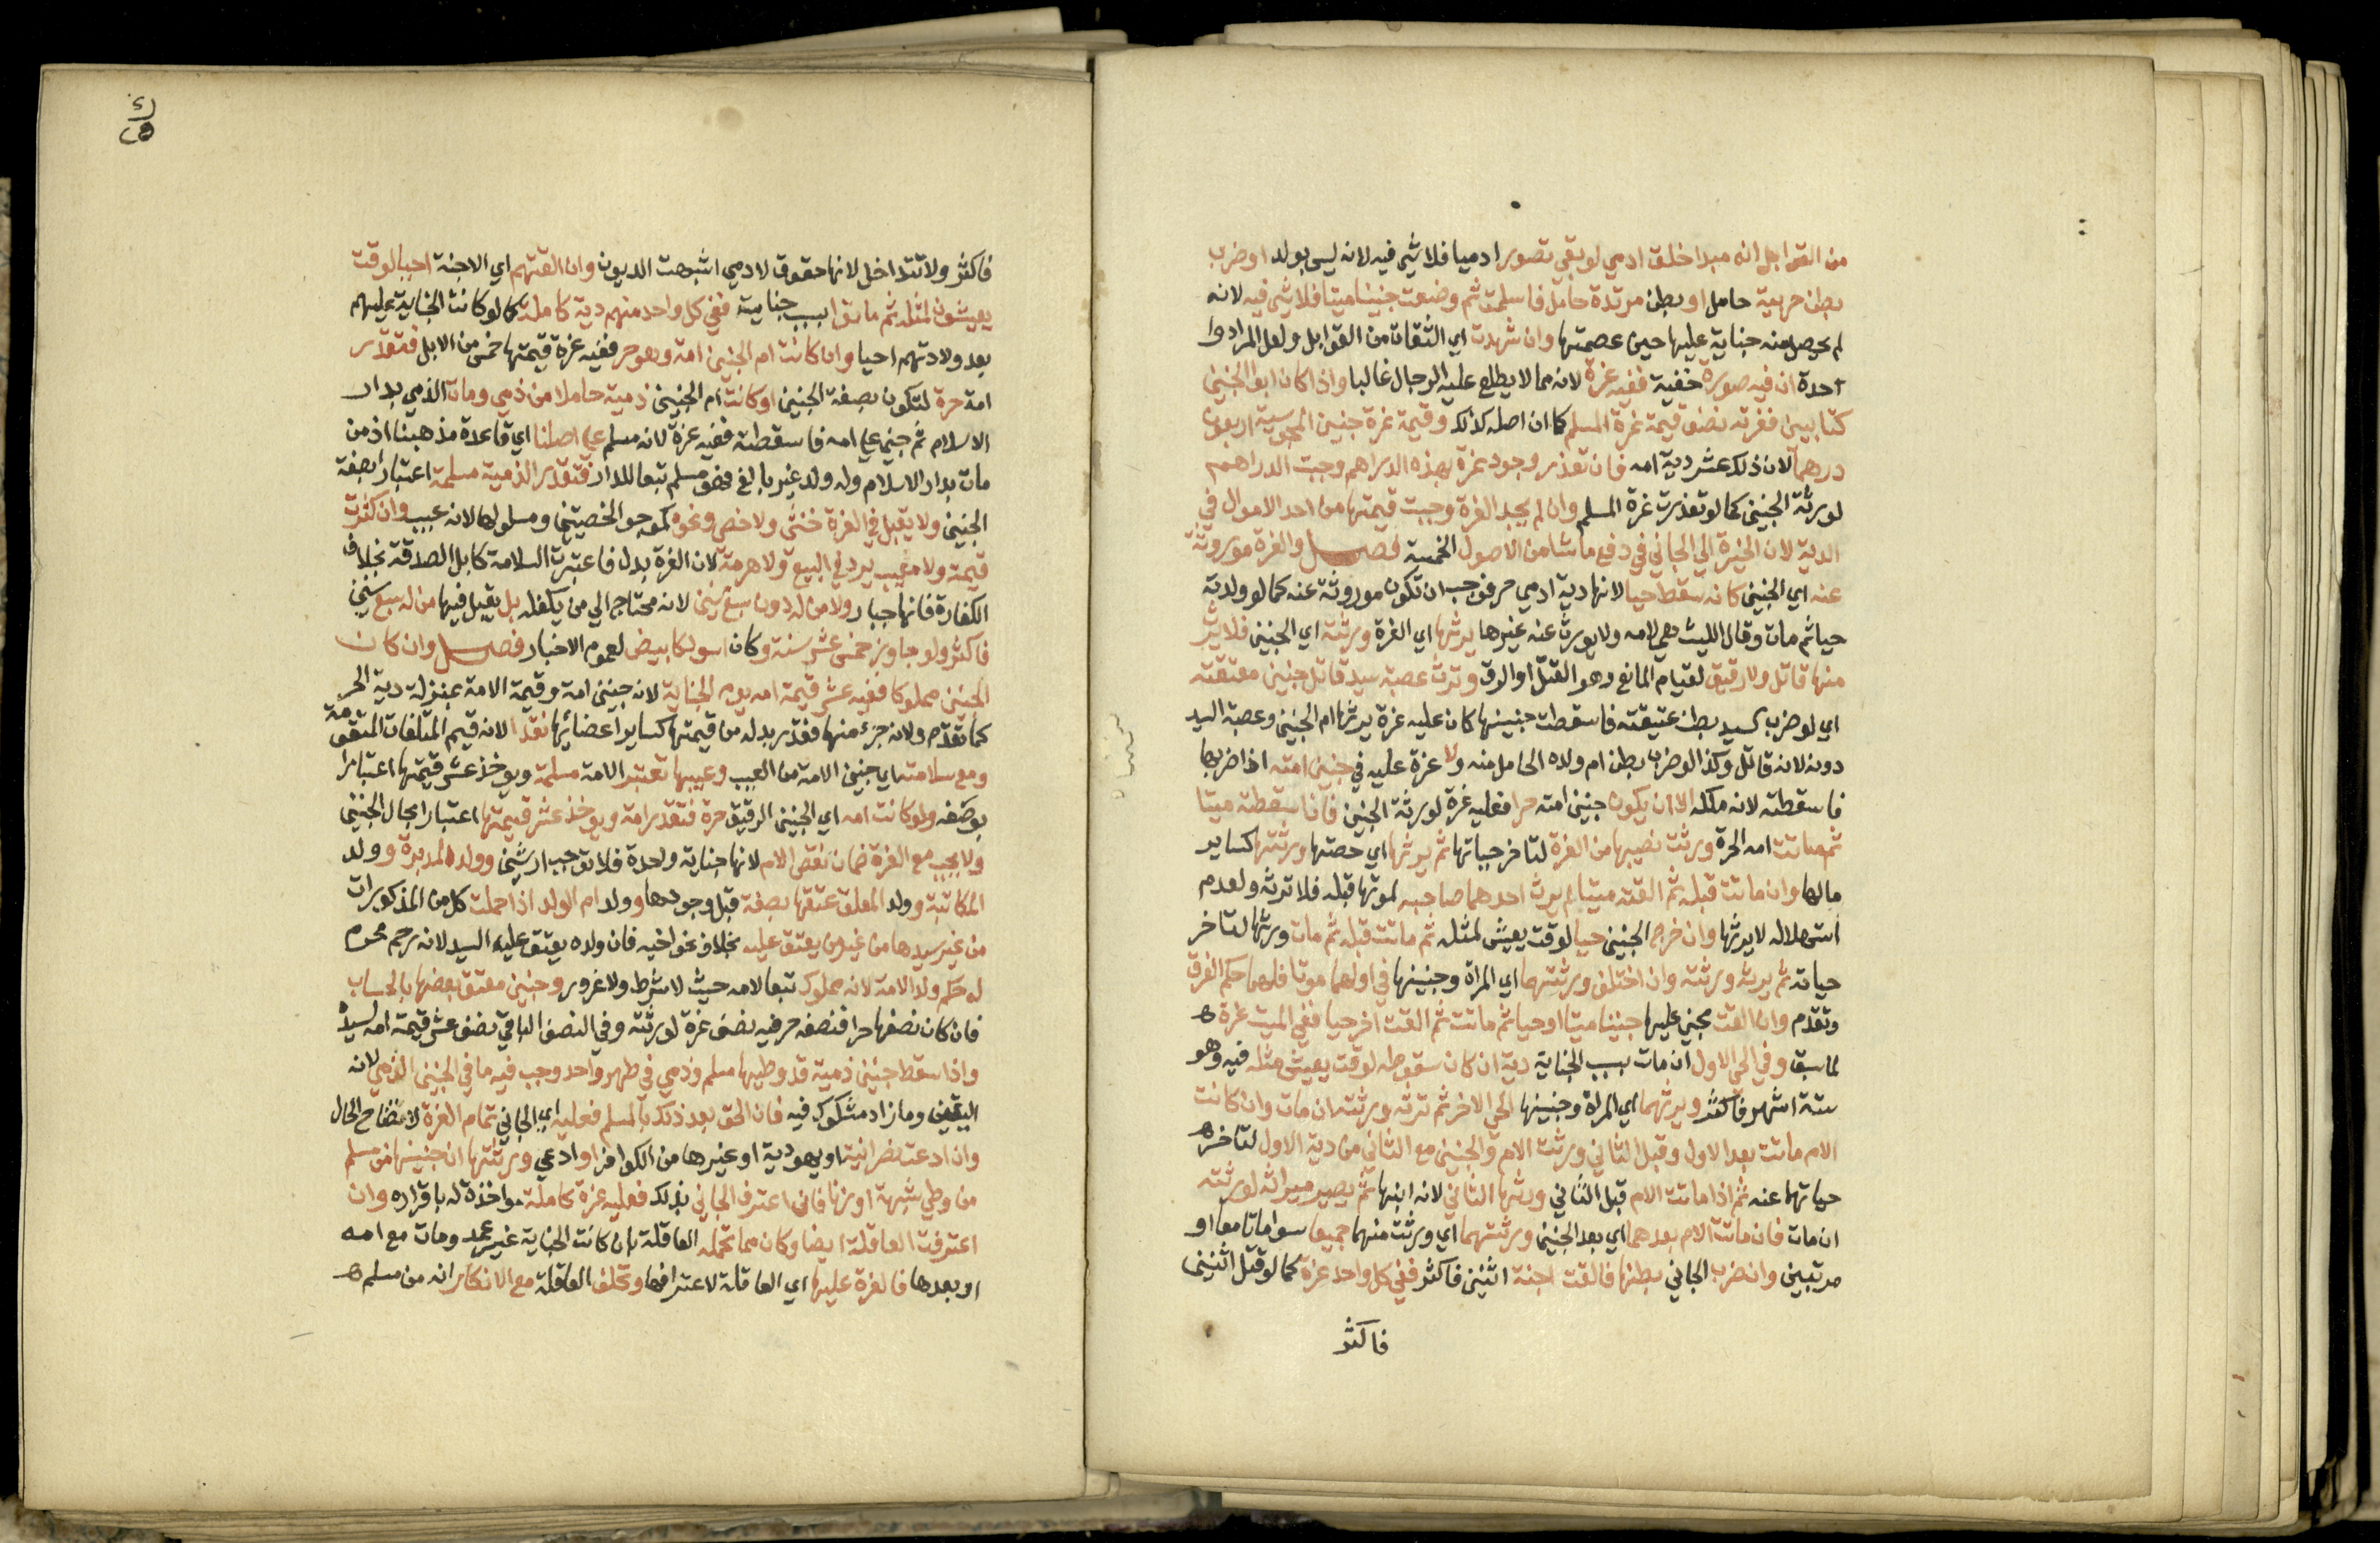 من القوابل انه مبدا خلق ادمي لو بقي تصور ادميا فلا شي فيه لانه ليس بولد او ضرب
بطن حربية حامل او بطن مرتدة حامل فاسلمت ثم وضعت جنينا ميتا فلا شي فيه لانه
لم يحصل منه جناية عليها حين عصمتها وان شهدت اي الثقات من القوابل ولعل المراد وا
احدة ان فيه صورة خفية ففيه غرة لانه مما لا يطلع عليه الرجال غالبا واذا كان ابوا الجنين
كتابيين فغرته نصف قيمة غرة المسلم كما ان اصله كذلك وقيمة غرة جنين المجوسية اربعون
درهما لان ذلك عشر دية امه فان تعذر وجود غرة بهذه الدراهم وجبت الدراهم
لورثة الجنين كما لو تعذرت غرة المسلم وان لم يجد الغرة وجبت قيمتها من احد الاموال في
الدية لان الخيرة الي الجاني في دفع ما شا من الاصول الخمسة فصل والغرة موروثة
عنه اي الجنين كانه سقط حيا لانها دية ادمي حر فوجب ان تكون موروثة عنه كما لو ولدته
حيا ثم مات وقال الليث هي لامه ولا يورث عنه غيرها يرثها اي الغرة ورثته اي الجنين فلا يرث
منها قاتل ولا رقيق لقيام المانع وهو القتل او الرق وترث عصبة سيد قاتل جنين معتقته
اي لو ضرب السيد بطن عتيقته فاسقطت جنينها كان عليه غرة يرثها ام الجنين وعصبة السيد
دونه لانه قاتل وكذا لو ضرب بطن ام ولده الحامل منه ولا غرة عليه في جنين امته اذا ضربها
فاسقطته لانه ملكه الا ان يكون جنين امته حرا فعليه غرة لورثة الجنين فان اسقطته ميتا
ثم ماتت امه الحرة ورثت نصيبها من الغرة لتاخر حياتها ثم يرثها اي حصتها ورثتها كساير
مالها وان ماتت قبله ثم القته ميتا لم يرث احدهما صاحبه لموتها قبله فلا ترثه ولعدم
استهلاله لا يرثها وان خرج الجنين حيا لوقت يعيش لمثله ثم ماتت قبله ثم مات ورثها لتاخر
حياته ثم يرثه ورثته وان اختلف ورثتهما اي المراة وجنينها في اولهما موتا فلهما حكم الغرق
وتقدم وان القت مجني عليها جنينا ميتا او حيا ثم ماتت ثم القت اخر حيا ففي الميت غرة
لما سبق وفي الحي الاول ان مات بسبب الجناية دية ان كان سقوطه لوقت يعيش مثله فيه وهو
ستة اشهر فاكثر ويرثهما اي المراة وجنينها الحي الاخر ثم ترثه ورثته ان مات وان كانت
الام ماتت بعد الاول وقبل الثاني ورثت الام والجنين مع الثاني من دية الاول لتاخر
حياتهما عنه ثم اذا ماتت الام قبل الثاني ورثها الثاني لانه ابنها ثم يصير ميراثه لورثته
ان مات فان ماتت الام بعدهما اي بعد الجنين ورثتهما اي ورثت منهما جميعا سوا ماتا معا او
مرتبين وان ضرب الجاني بطنها فالقت اجنة اثنين فاكثر ففي كل واحد غرة كما لو قتل اثنين
فاكثر
فاكثر ولا تتداخل لانها حقوق لادمي اشبهت الديون وان القتهم اي الاجنة احيا لوقت
يعيشون لمثله ثم ماتوا بسبب جناية ففي كل واحد منهم دية كاملة كما لو كانت الجناية عليهم
بعد ولادتهم احيا وان كانت ام الجنين امة وهو حر ففيه غرة قيمتها خمس من الابل فتقدر
امه حرة لتكون بصفة الجنين او كانت ام الجنين ذمية حاملا من ذمي ومات الذمي بدار
الاسلام ثم جني علي امه فاسقطته ففيه غرة لانه مسلم علي اصلنا اي قاعدة مذهبنا اذ من
مات بدار الاسلام وله ولد غير بالغ فهو مسلم تبعا للدار فتقدر الذمية مسلمة اعتبارا بصفة
الجنين ولا يقبل في الغرة خنثي ولا خصي ونحوه كموجو الخصيتين ومسلولهما لانه عيب وان كثرت
قيمة ولا معيب يرد في البيع ولا هرمة لان الغرة بدل فاعتبرت السلامة كابل الصدقة بخلاف
الكفارة فانها جبار ولا من له دون سبع سنين لانه محتاج الي من يكفله بل يقبل فيها من له سبع سنين
فاكثر ولو جاوز خمس عشر سنة وكان اسود كابيض لعموم الاخبار فصل وان كان
الجنين مملوكا ففيه عشر قيمة امه يوم الجناية لانه جنين امة وقيمة الامة بمنزلة دية الحر
كما تقدم ولانه جزء منها فقدر بدله من قيمتها كساير اعضائها نقدا لانه قيم المتلفات المتقومة
ومع سلامته اي جنين الامة من العيب وعيبها تعتبر الامة مسلمة ويوخذ عشر قيمتها اعتبارا
بوصفه ولو كانت امه اي الجنين الرقيق حرة فتقدر امة ويوخذ عشر قيمتها اعتبارا بحال الجنين
ولا يجب مع الغرة ضمان نقص الام لانها جناية واحدة فلا توجب ارشين وولد المدبرة وولد
المكاتبة وولد المعلق عتقها بصفة قبل وجودها وولد ام الولد اذا حملت كل من المذكورات
من غير سيدها من غير من يعتق عليه بخلاف نحو اخيه فان ولده يعتق عليه السيد لانه رحم محرم
له حكم ولد الامة لانه مملوك تبعا لامه حيث لا شرط ولا غرور وجنين معتق بعضها بالحساب
فان كان نصفها حرا فنصفه حر فيه نصف غرة لورثته وفي النصف الباقي نصف عشر قيمة امه لسيده
واذا سقط جنين ذمية قد وطيها مسلم وذمي في طهر واحد وجب فيه ما في الجنين الذمي لانه
اليقين وما زاد مشكوك فيه فان الحق بعد ذلك بالمسلم فعليه اي الجاني تمام الغرة لاتضاح الحال
وان ادعت نصرانية او يهودية او غيرها من الكوافر او ادعي ورثتها ان جنينها من مسلم
من وطي شبهة او زنا فان اعترف الجاني بذلك فعليه غرة كاملة مواخذة له باقراره وان
اعترفت العاقلة ايضا وكان مما تحمله العاقلة بان كانت الجناية غير عمد ومات مع امه
او بعدها فالغرة عليها اي العاقلة لاعترافها وتحلف العاقلة مع الانكار انه من مسلم